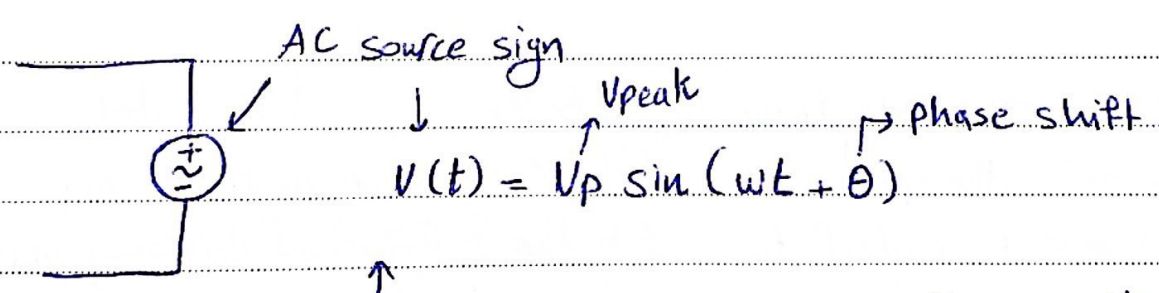 AC source sign
Vpeak
phase shift
V(t) = Vp sin (wt + θ)
+
~
-